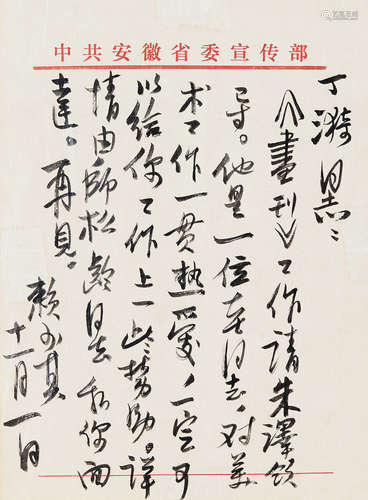 中共安徽省委宣传部
丁漪同志：
《畫刊》工作請朱澤領
导。他是一位老同志，对美
术工作一貫热爱，一定可
以给你工作上一些帮助。詳
情由師松齡同志和你面
達。再見。
赖少其
十一月一日